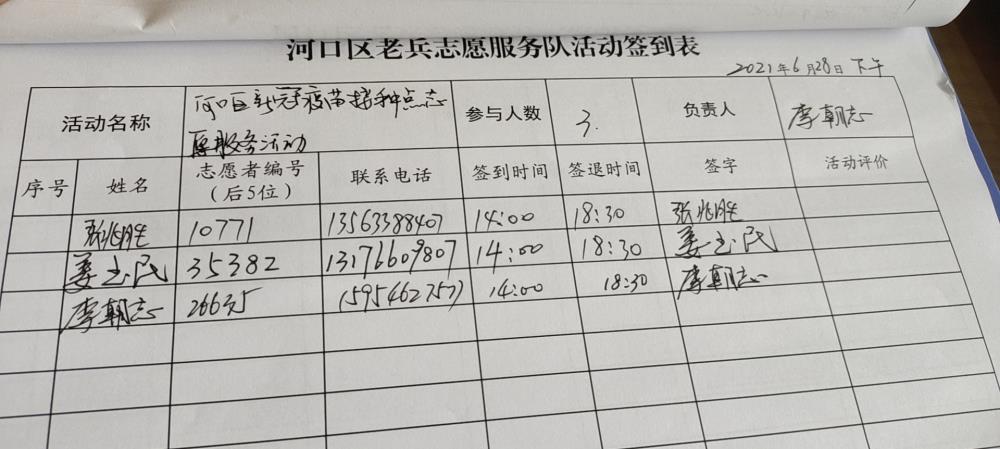 河口区老兵志愿服务队活动签到表
2021年6月28日 下午
活动名称 河口区新冠疫苗接种点志愿服务活动 参与人数 3. 负责人 李朝志
序号 姓名 志愿者编号（后5位） 联系电话 签到时间 签退时间 签字 活动评价
张兆胜 10771 13563388407 14:00 18:30 张兆胜
姜玉民 35382 13176609807 14:00 18:30 姜玉民
李朝志 14:00 18:30 李朝志